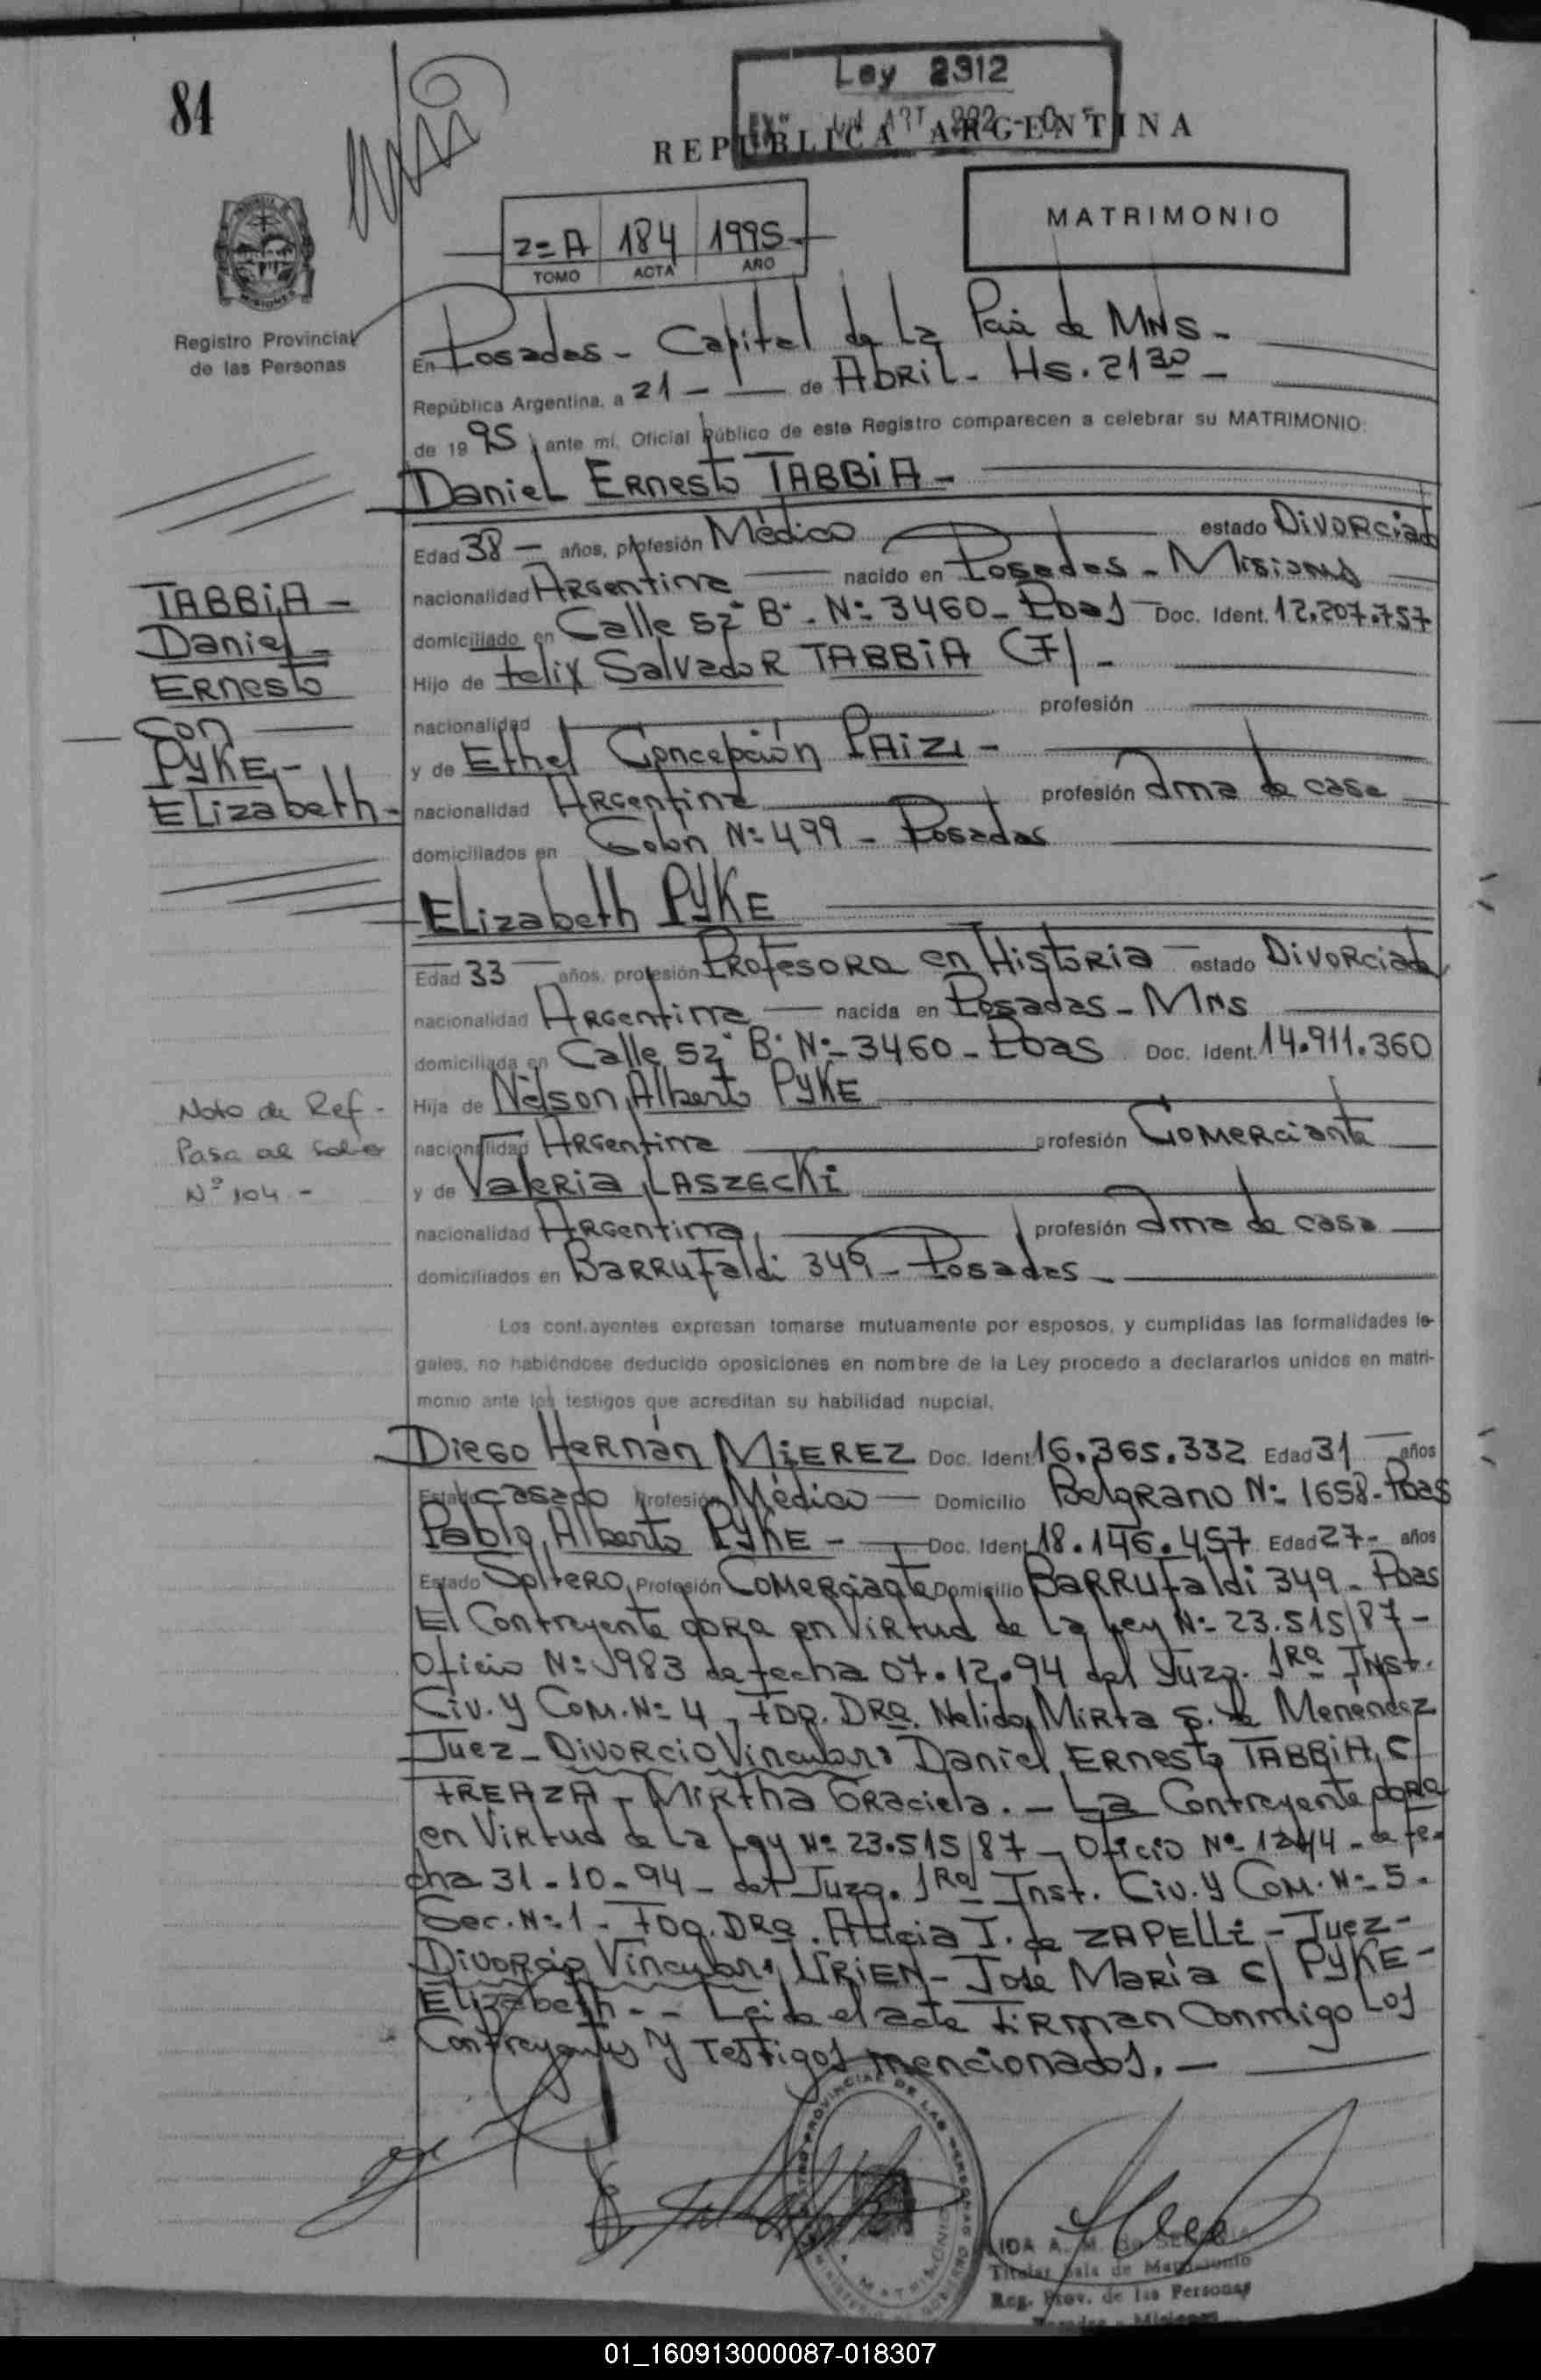 84
Ley 2312
REPUBLICA ARGENTINA
MATRIMONIO
2= A 184 1995-
TOMO ACTA AÑO
MISIONES
Registro Provincial
de las Personas
En Posadas - Capital de La Pcia de MNS-
República Argentina, a 21 - de Abril - Hs. 21 30 -
de 1995, ante mí, Oficial Público de este Registro comparecen a celebrar su MATRIMONIO:
Daniel Ernesto TABBiA -
Edad 38 - años, profesión Médico estado Divorciado
nacionalidad Argentina nacido en Posadas - Misiones
domiciliado en Calle 52 "B". N:- 3460 - Pdas Doc. Ident. 12.207.757
Hijo de Felix Salvador TABBiA (F) -
nacionalidad profesión
y de Ethel Concepción PAiZi -
nacionalidad Argentina profesión Ama de casa
domiciliados en Colón N:- 499 - Posadas
TABBiA -
Daniel -
Ernesto
Con
PYKE -
Elizabeth -
Elizabeth PYKE
Edad 33 años, profesión Profesora en Historia estado Divorciada
nacionalidad Argentina nacida en Posadas - Mns
domiciliada en Calle 52 "B" N:- 3460 - Pdas Doc. Ident. 14.911.360
Hija de Nélson Alberto PYKE
nacionalidad Argentina profesión Comerciante
y de Valeria LASZECKi
nacionalidad Argentina profesión Ama de casa
domiciliados en Barrufaldi 349 - Posadas -
Nota de Ref -
Pasa al folio
Nº 104 -
Los contrayentes expresan tomarse mutuamente por esposos, y cumplidas las formalidades le-
gales, no habiéndose deducido oposiciones en nombre de la Ley procedo a declararlos unidos en matri-
monio ante los testigos que acreditan su habilidad nupcial.
Diego Hernán MiEREZ Doc. Ident. 16.365.332 Edad 31 años
Estado Casado Profesión Médico Domicilio Belgrano N:- 1658 - Pdas
Pablo Alberto PYKE - Doc. Ident. 18.146.457 Edad 27 - años
Estado Soltero Profesión Comerciante Domicilio Barrufaldi 349 - Pdas
El Contrayente obra en Virtud de la Ley N:- 23.515/87 -
Oficio N:- 1983 de fecha 07.12.94 del Juzg. 1Ra Inst.
Civ. y Com. N:- 4 - Fdo. DRa. Nelida Mirta S. de Menéndez
Juez - Divorcio Vincular: Daniel Ernesto TABBiA C/
FREAZA - Mirtha Graciela. - La Contrayente obra
en Virtud de la Ley N:- 23.515/87 - Oficio N:- 1244 - de fe-
cha 31-10-94 - del Juzg. 1Ra Inst. Civ. y Com. N:- 5 -
Sec. N:- 1 - Fdo. DRa. Alicia I. de ZAPELLi - Juez -
Divorcio Vincular: URiEN - José María C/ PYKE -
Elizabeth - - Leida el acta Firman Conmigo Los
Contrayentes y Testigos mencionados. -
REGISTRO PROVINCIAL DE LAS PERSONAS
MATRIMONIO
Titular Sala de Matrimonio
Reg. Prov. de las Personas
Posadas - Misiones
01_160913000087-018307